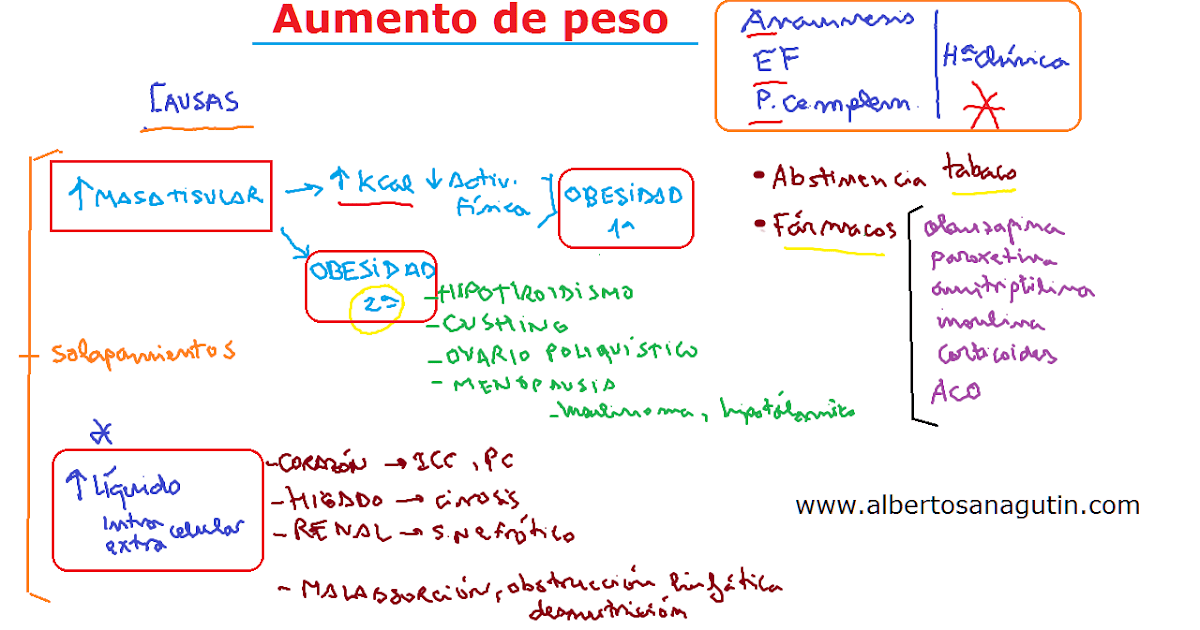 Aumento de peso
Anamnesis
EF
P. Complem.
Hª clínica
CAUSAS
↑ MASA TISULAR
↑ Kcal ↓ Activ. Física
OBESIDAD 1ª
OBESIDAD 2ª
- HIPOTIROIDISMO
- CUSHING
- OVARIO POLIQUÍSTICO
- MENOPAUSIA
- Insulinoma, hipotálamico
• Abstinencia tabaco
• Fármacos
olanzapina
paroxetina
amitriptilina
insulina
corticoides
ACO
Solapamientos
↑ Líquido
intra
extra celular
- CORAZÓN → ICC, PC
- HIGADO → cirrosis
- RENAL → S. Nefrótico
- MALABSORCIÓN, obstrucción linfática
desnutrición
www.albertosanagutin.com